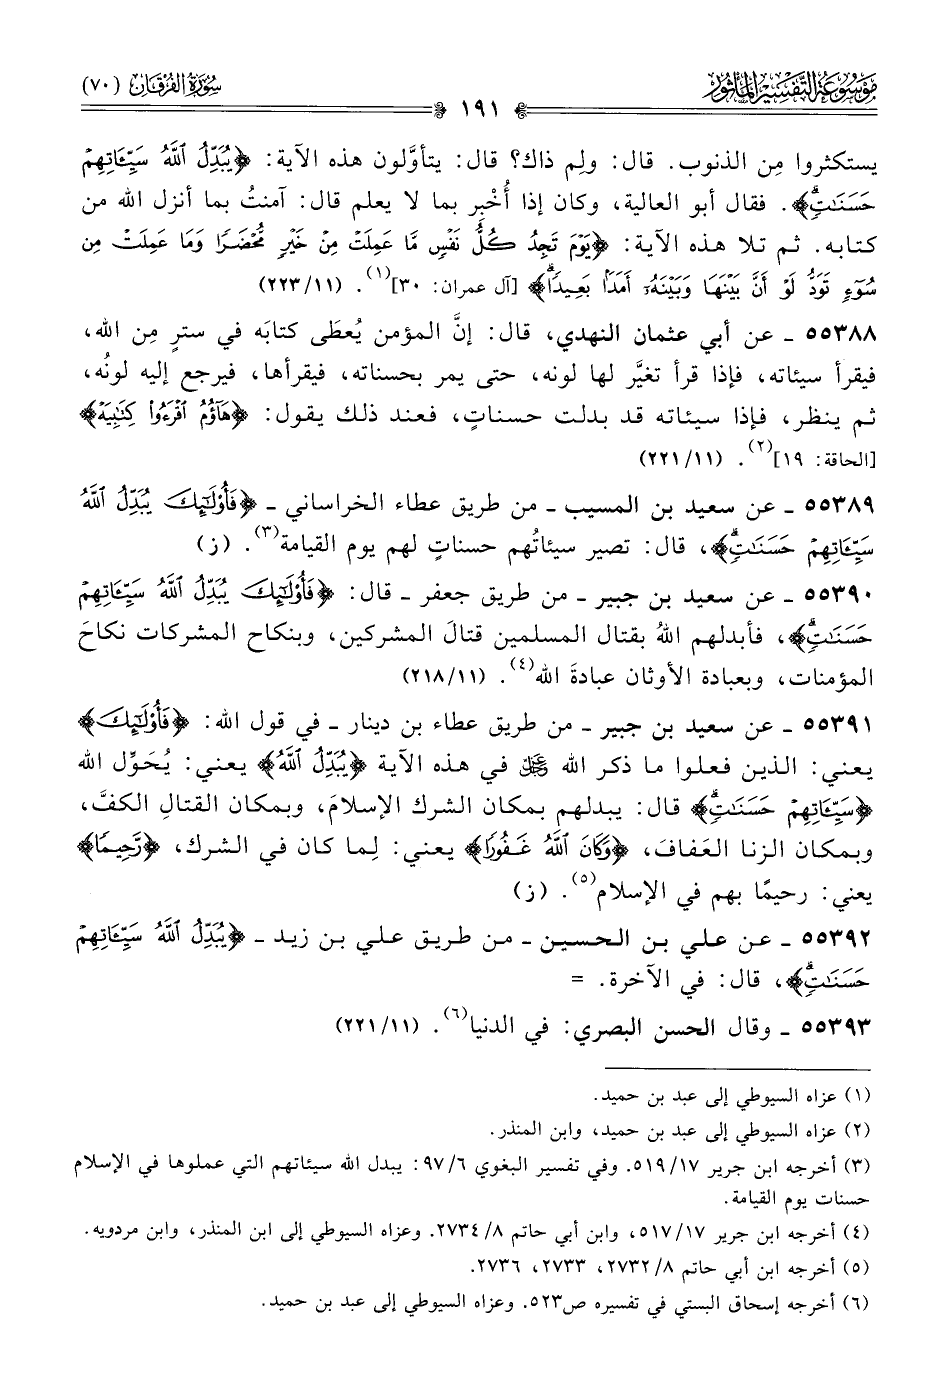 مَوْسُوعَة التَّفْسِيْر المَأْثُور
١٩١
سُورَةُ الفُرْقَان (٧٠)
يستكثروا مِن الذنوب. قال: ولِم ذاك؟ قال: يتأوَّلون هذه الآية: ﴿يُبَدِّلُ ٱللَّهُ سَيِّـَٔاتِهِمْ
حَسَنَٰتٍۗ﴾. فقال أبو العالية، وكان إذا أُخْبِر بما لا يعلم قال: آمنتُ بما أنزل الله من
كتابه. ثم تلا هذه الآية: ﴿يَوْمَ تَجِدُ كُلُّ نَفْسٍ مَّا عَمِلَتْ مِنْ خَيْرٍ مُّحْضَرًا وَمَا عَمِلَتْ مِن
سُوٓءٍ تَوَدُّ لَوْ أَنَّ بَيْنَهَا وَبَيْنَهُۥٓ أَمَدًۢا بَعِيدًاۗ﴾ [آل عمران: ٣٠](١). (١١/٢٢٣)
٥٥٣٨٨ ـ عن أبي عثمان النهدي، قال: إنَّ المؤمن يُعطَى كتابَه في سترٍ مِن الله،
فيقرأ سيئاته، فإذا قرأ تغيَّر لها لونه، حتى يمر بحسناته، فيقرأها، فيرجع إليه لونُه،
ثم ينظر، فإذا سيئاته قد بدلت حسناتٍ، فعند ذلك يقول: ﴿هَآؤُمُ ٱقْرَءُوا۟ كِتَٰبِيَهْ﴾
[الحاقة: ١٩](٢). (١١/٢٢١)
٥٥٣٨٩ ـ عن سعيد بن المسيب ـ من طريق عطاء الخراساني ـ ﴿فَأُو۟لَٰٓئِكَ يُبَدِّلُ ٱللَّهُ
سَيِّـَٔاتِهِمْ حَسَنَٰتٍۗ﴾، قال: تصير سيئاتُهم حسناتٍ لهم يوم القيامة(٣). (ز)
٥٥٣٩٠ ـ عن سعيد بن جبير ـ من طريق جعفر ـ قال: ﴿فَأُو۟لَٰٓئِكَ يُبَدِّلُ ٱللَّهُ سَيِّـَٔاتِهِمْ
حَسَنَٰتٍۗ﴾، فأبدلهم اللهُ بقتال المسلمين قتالَ المشركين، وبنكاح المشركات نكاحَ
المؤمنات، وبعبادة الأوثان عبادةَ الله(٤). (١١/٢١٨)
٥٥٣٩١ ـ عن سعيد بن جبير ـ من طريق عطاء بن دينار ـ في قول الله: ﴿فَأُو۟لَٰٓئِكَ﴾
يعني: الذين فعلوا ما ذكر الله ﷿ في هذه الآية ﴿يُبَدِّلُ ٱللَّهُ﴾ يعني: يُحَوِّل الله
﴿سَيِّـَٔاتِهِمْ حَسَنَٰتٍۗ﴾ قال: يبدلهم بمكان الشرك الإسلامَ، وبمكان القتالِ الكفَّ،
وبمكان الزنا العَفافَ، ﴿وَكَانَ ٱللَّهُ غَفُورًا﴾ يعني: لِما كان في الشرك، ﴿رَّحِيمًا﴾
يعني: رحيمًا بهم في الإسلام(٥). (ز)
٥٥٣٩٢ ـ عن علي بن الحسين ـ من طريق علي بن زيد ـ ﴿يُبَدِّلُ ٱللَّهُ سَيِّـَٔاتِهِمْ
حَسَنَٰتٍۗ﴾، قال: في الآخرة. =
٥٥٣٩٣ ـ وقال الحسن البصري: في الدنيا(٦). (١١/٢٢١)
(١) عزاه السيوطي إلى عبد بن حميد.
(٢) عزاه السيوطي إلى عبد بن حميد، وابن المنذر.
(٣) أخرجه ابن جرير ١٧/٥١٩. وفي تفسير البغوي ٦/٩٧: يبدل الله سيئاتهم التي عملوها في الإسلام
حسنات يوم القيامة.
(٤) أخرجه ابن جرير ١٧/٥١٧، وابن أبي حاتم ٨/٢٧٣٤. وعزاه السيوطي إلى ابن المنذر، وابن مردويه.
(٥) أخرجه ابن أبي حاتم ٨/٢٧٣٢، ٢٧٣٣، ٢٧٣٦.
(٦) أخرجه إسحاق البستي في تفسيره ص٥٢٣. وعزاه السيوطي إلى عبد بن حميد.